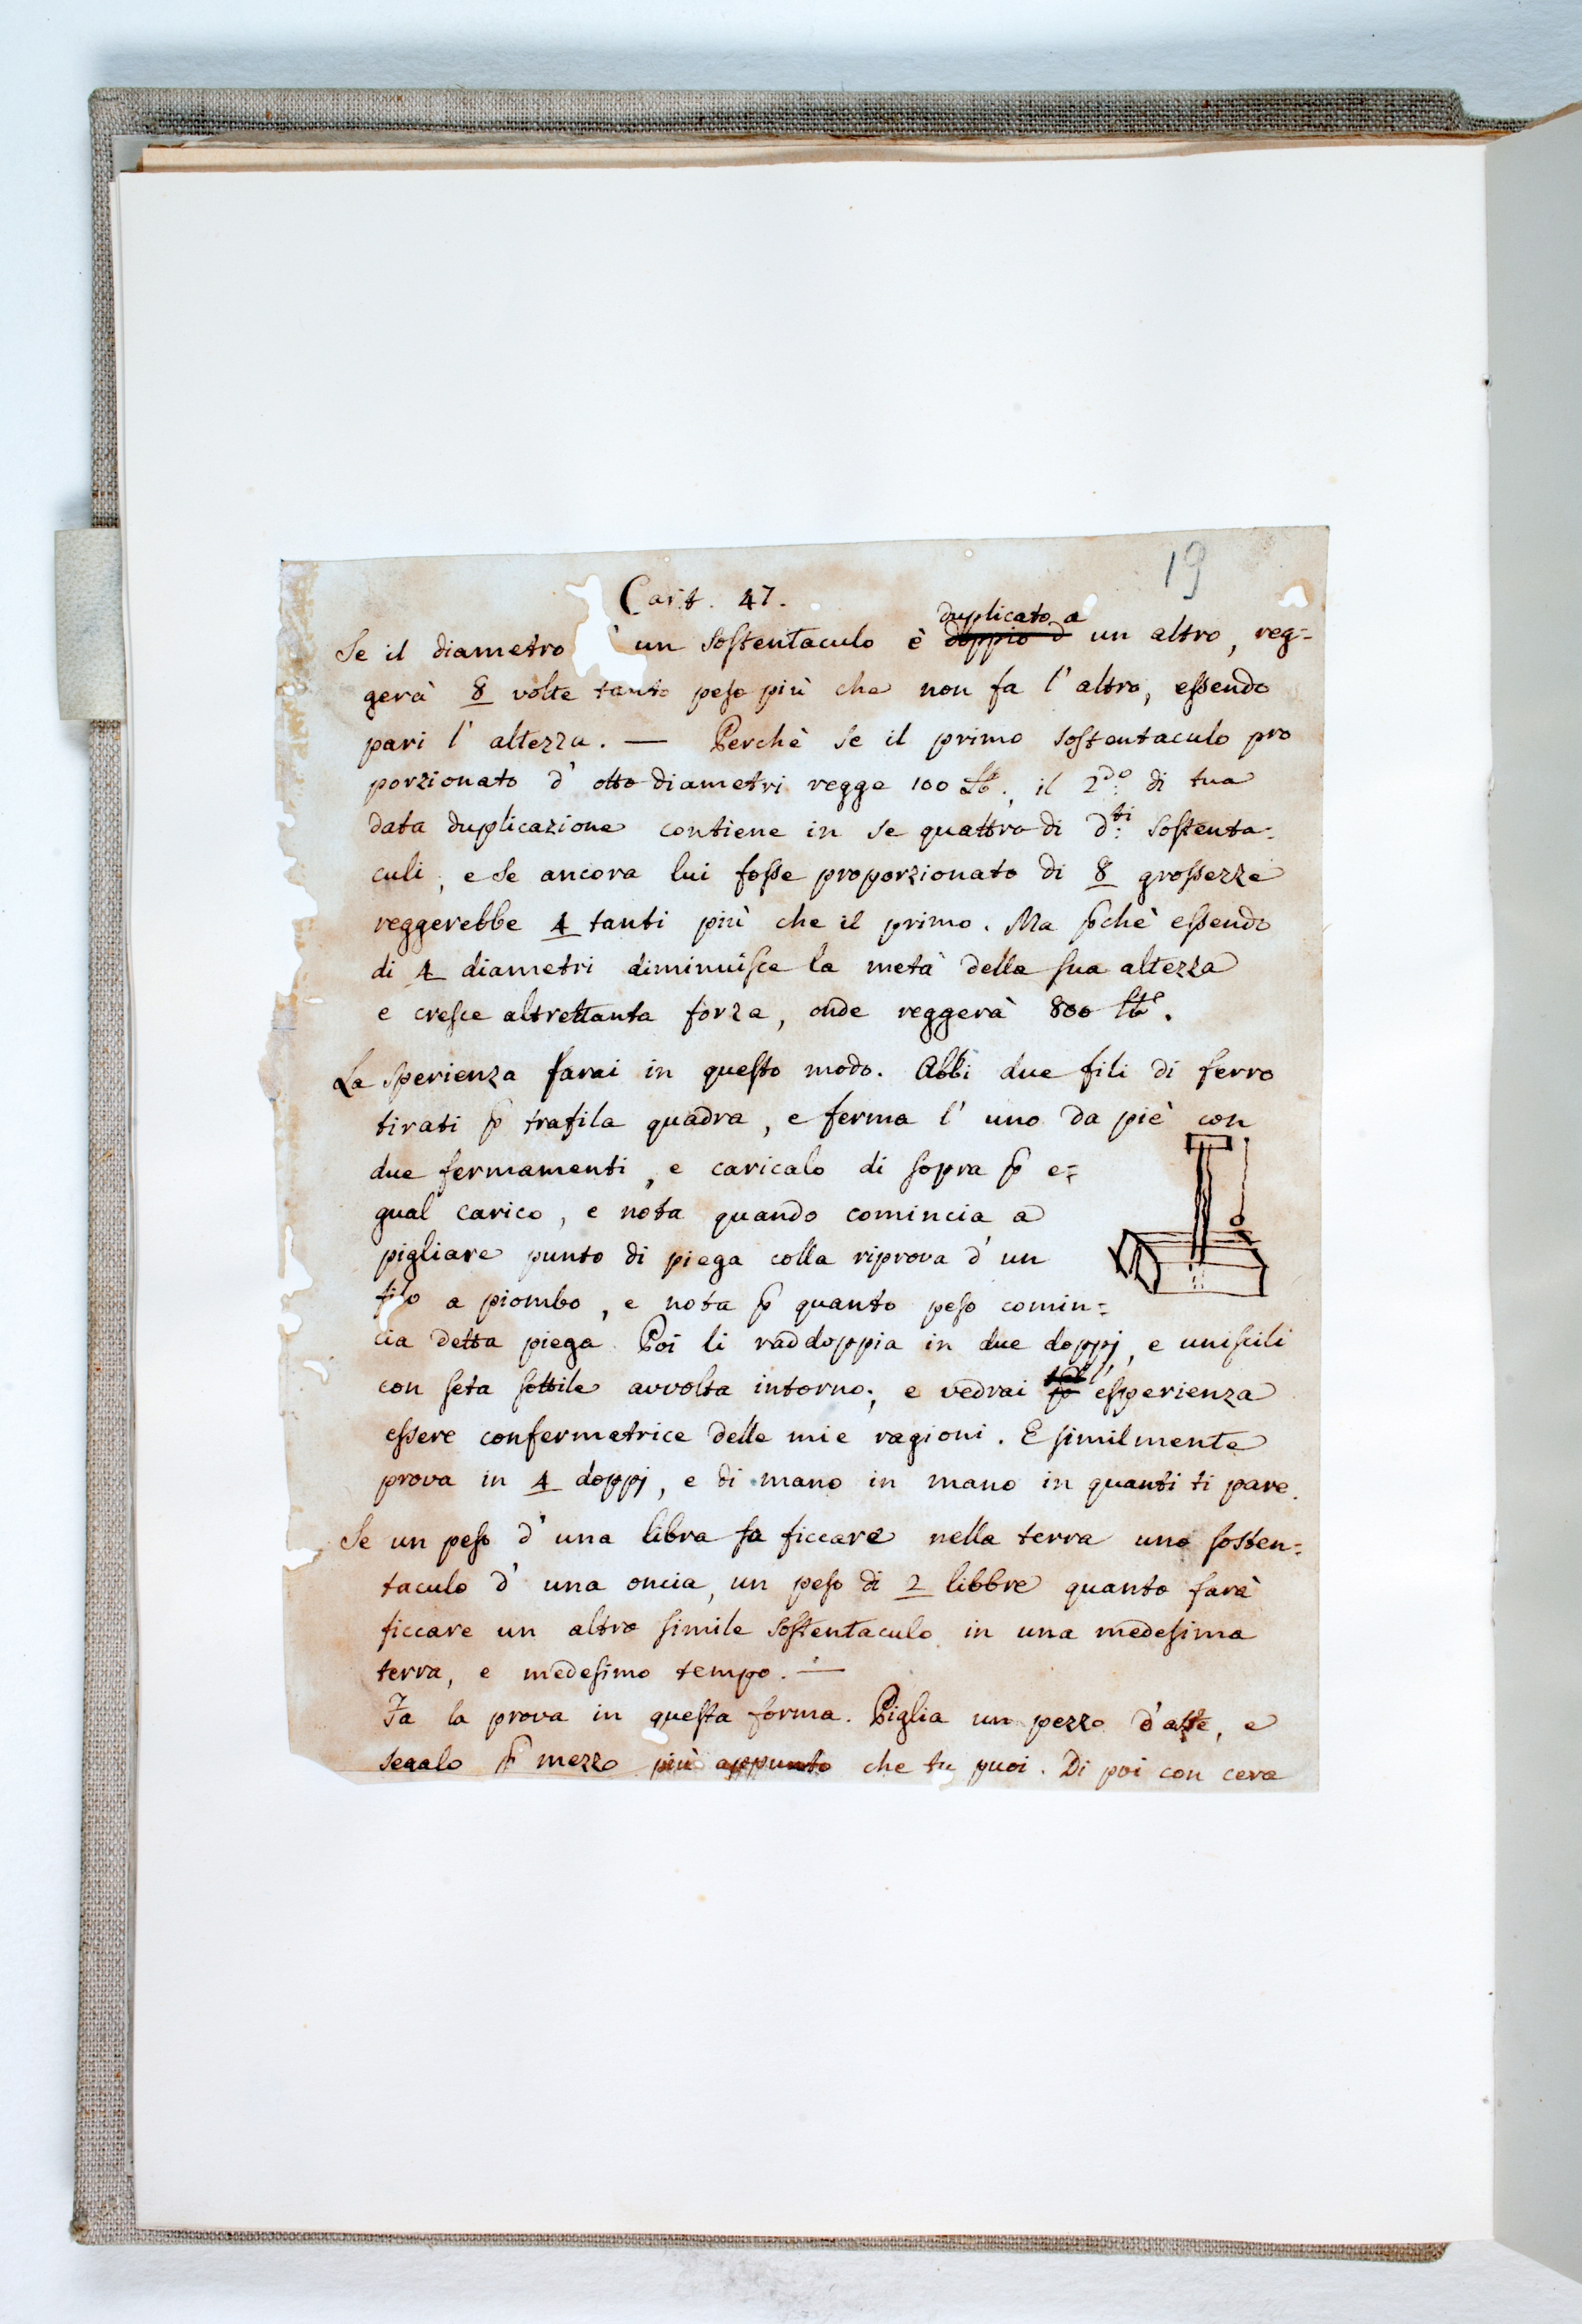 19
Cart. 47.
duplicato a
Se il diametro un sostentaculo è doppio d un altro, reg=
gerà 8 volte tanto peso più che non fa l'altro, essendo
pari l'altezza. — Perchè se il primo sostentaculo pro
porzionato d'otto diametri regge 100 lb., il 2do di tua
data duplicazione contiene in se quattro di dti sostenta=
culi, e se ancora lui fosse proporzionato di 8 grossezze
reggerebbe 4 tanti più che il primo. Ma p̄chè essendo
di 4 diametri diminuisce la metà della sua altezza
e cresce altrettanta forza, onde reggerà 800 lbe.
La sperienza farai in questo modo. Abbi due fili di ferro
tirati p̄ trafila quadra, e ferma l'uno da piè con
due fermamenti, e caricalo di sopra p̄ e=
gual carico, e nota quando comincia a
pigliare punto di piega colla riprova d'un
filo a piombo, e nota p̄ quanto peso comin=
cia detta piega. Poi li raddoppia in due doppj, e uniscili
con seta sottile avvolta intorno; e vedrai tal esperienza
essere confermatrice delle mie ragioni. E similmente
prova in 4 doppj, e di mano in mano in quanti ti pare.
Se un peso d'una libra fa ficcare nella terra uno sosten=
taculo d'una oncia, un peso di 2 libbre quanto farà
ficcare un altro simile sostentaculo in una medesima
terra, e medesimo tempo. —
Fa la prova in questa forma. Piglia un pezzo d'asse, e
segalo p̄ mezzo più appunto che tu puoi. Di poi con cera